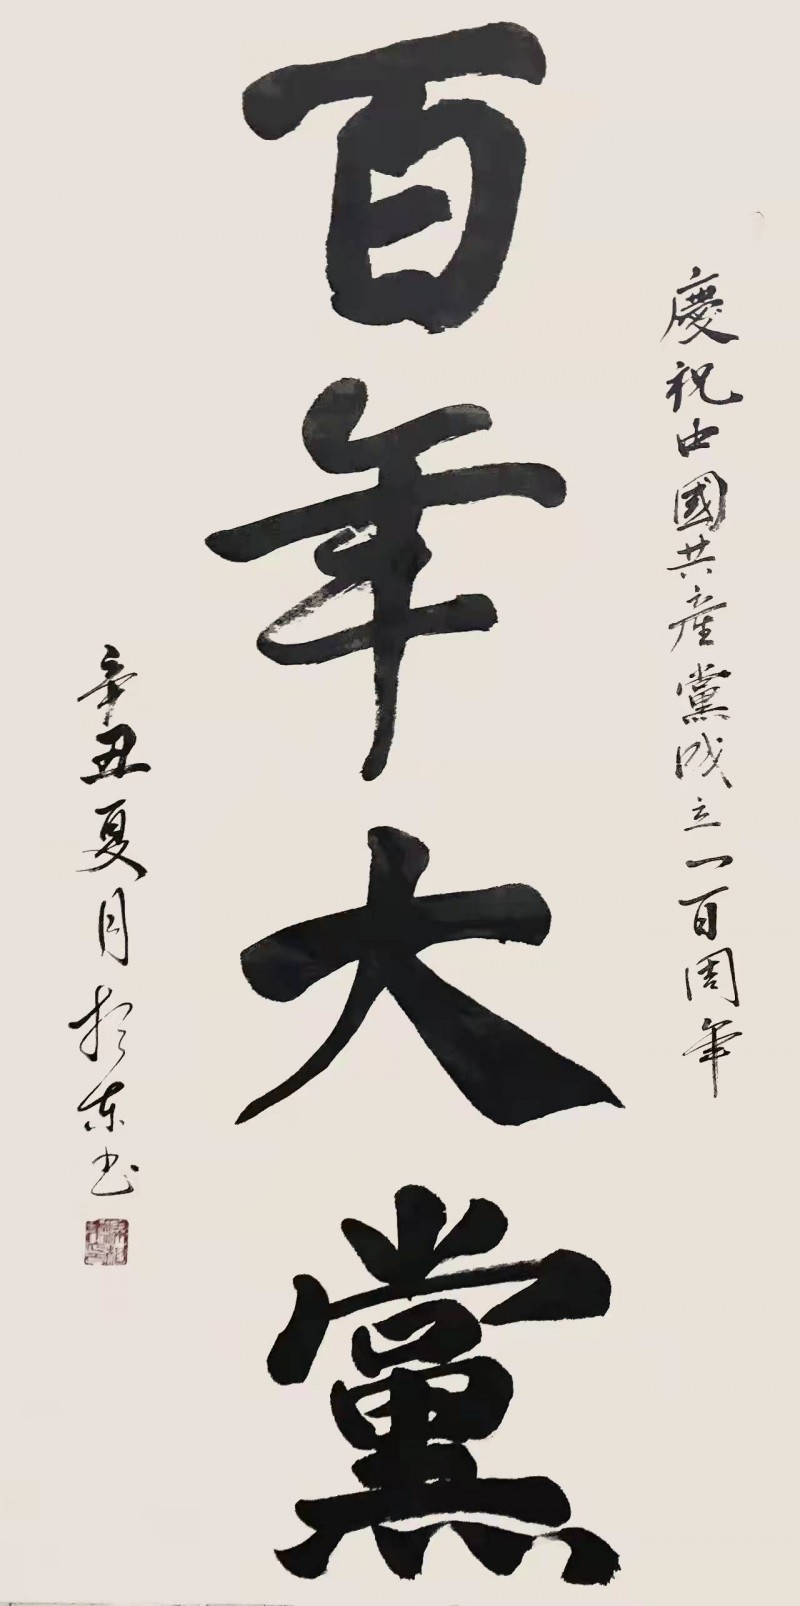 慶祝中國共產黨成立一百周年
百年大黨
辛丑夏月东书